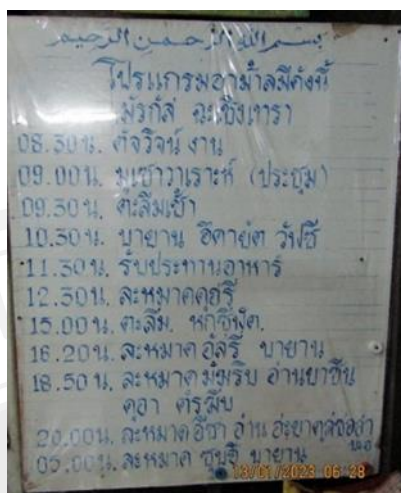 بسم الله الرحمن الرحيم
โปรแกรมอามาลมีดังนี้
มัรกัส ฉะเชิงเทรา
08.30น. ตัจวีจน์ งาน
09.00น. มูชาวาเราะห์ (ประชุม)
09.30น. ตะลีมเช้า
10.30น. บายาน ฮีดายัต วัฟซี
11.30น. รับประทานอาหาร
12.30น. ละหมาดดุฮ์รี
15.00น. ตะลีม.
16.20น. ละหมาด อัสรี บายาน
18.50น. ละหมาดมัฆริบ อ่านยาซีน
ดุอา
20.00น. ละหมาดอีชา อ่าน
05.00น. ละหมาด ซุบฮี บายาน
13/01/2023 06:28